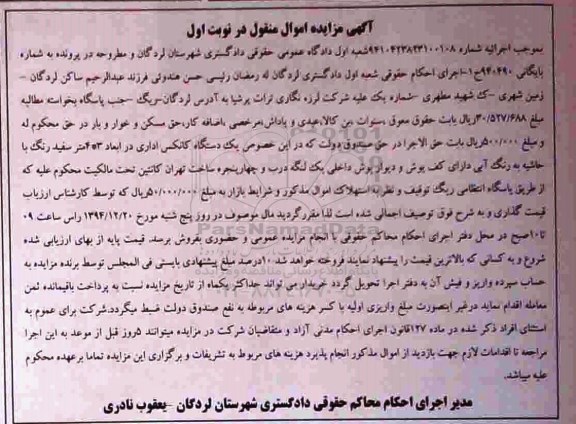 آگهی مزایده اموال منقول در نوبت اول
بموجب اجرائیه شماره ۹۴۱۰۴۲۳۸۲۳۱۰۰۱۰۸شعبه اول دادگاه عمومی حقوقی دادگستری شهرستان لردگان و مطروحه در پرونده به شماره
بایگانی ۹۴۰۴۹۰ج۱-اجرای احکام حقوقی شعبه اول دادگستری لردگان له رمضان رئیسی حسن هندوئی فرزند عبدالرحیم ساکن لردگان –
زمین شهری –ک شهید مطهری –شماره یک علیه شرکت لرزه نگاری تراث پرشیا به آدرس لردگان–ریگ –جنب پاسگاه بخواسته مطالبه
مبلغ ۳۰/۵۲۷/۶۸۸ریال بابت حقوق معوق ،سنوات ،بن کالا،عیدی و پاداش،مرخصی،باضافه کار،حق مسکن و خوار و بار در حق محکوم له
و مبلغ ۵۰۰/۰۰۰ریال بابت حق الاجرا در حق صندوق دولت که در این خصوص یک دستگاه کانکس اداری در ابعاد ۳*۴متر سفید رنگ با
حاشیه به رنگ آبی دارای کف پوش و دیوار پوش داخلی یک لنگه درب و چهارپنجره ساخت تهران کانتین تحت مالکیت محکوم علیه که
از طریق پاسگاه انتظامی ریگ توقیف و نظر به استهلاک اموال مذکور و شرایط بازار به مبلغ ۵۰/۰۰۰/۰۰۰ریال که توسط کارشناس ارزیاب
قیمت گذاری و به شرح فوق توصیف اجمالی شده است لذا مقرر گردید مال موصوف در روز پنج شنبه مورخ ۱۳۹۴/۱۲/۲۰ راس ساعت ۰۹
تا۱۰صبح در محل دفتر اجرای احکام محاکم حقوقی با انجام مزایده عمومی و حضوری بفروش برسد. قیمت پایه از بهای ارزیابی شده
شروع و به کسانی که بالاترین قیمت را پیشنهاد نمایند فروخته خواهد شد.۱۰درصد مبلغ پیشنهادی بایستی فی المجلس توسط برنده مزایده به
حساب سپرده واریز و فیش آن به دفتر اجرا تحویل گردد خریدار می تواند حداکثر یکماه از تاریخ مزایده نسبت به پرداخت باقیمانده ثمن
معامله اقدام نماید درغیر اینصورت مبلغ واریزی اولیه با کسر هزینه های مربوطه به نفع صندوق دولت ضبط میگردد.شرکت برای عموم به
استثنای افراد ذکر شده در ماده ۱۲۷قانون اجرای احکام مدنی آزاد و متقاضیان شرکت در مزایده میتوانند ۵روز قبل از موعد به این اجرا
مراجعه تا اقدامات لازم جهت بازدید از اموال مذکور انجام پذیرد هزینه های مربوط به تشریفات و برگزاری این مزایده تماما برعهده محکوم
علیه میباشد.
مدیر اجرای احکام محاکم حقوقی دادگستری شهرستان لردگان –یعقوب نادری